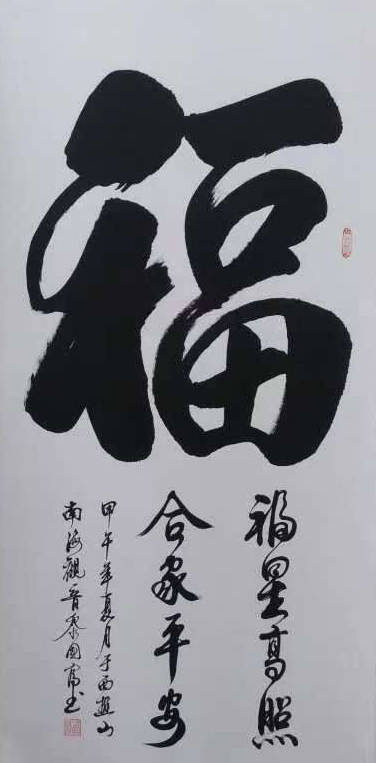 福
福星高照
合家平安
甲午年夏月于西樵山
南海觀音黎國富书